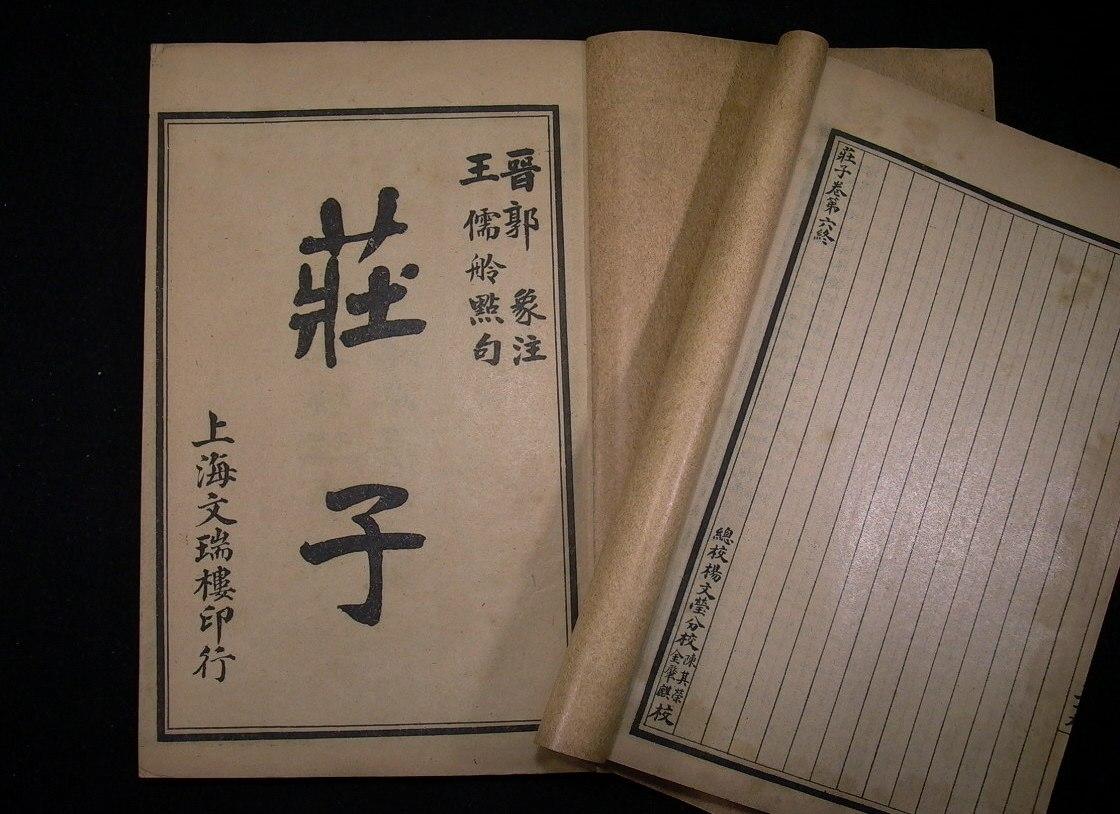 晋郭象注
王儒舲點句
莊子
上海文瑞樓印行
莊子卷第六終
總校楊文瑩分校陳其榮金肇麒校